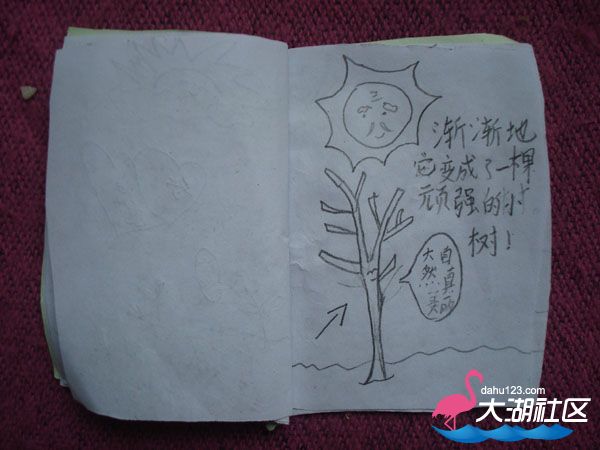 渐渐地
它变成了一棵
顽强的小
树！
大自
然真
美丽
dahu123.com
大湖社区